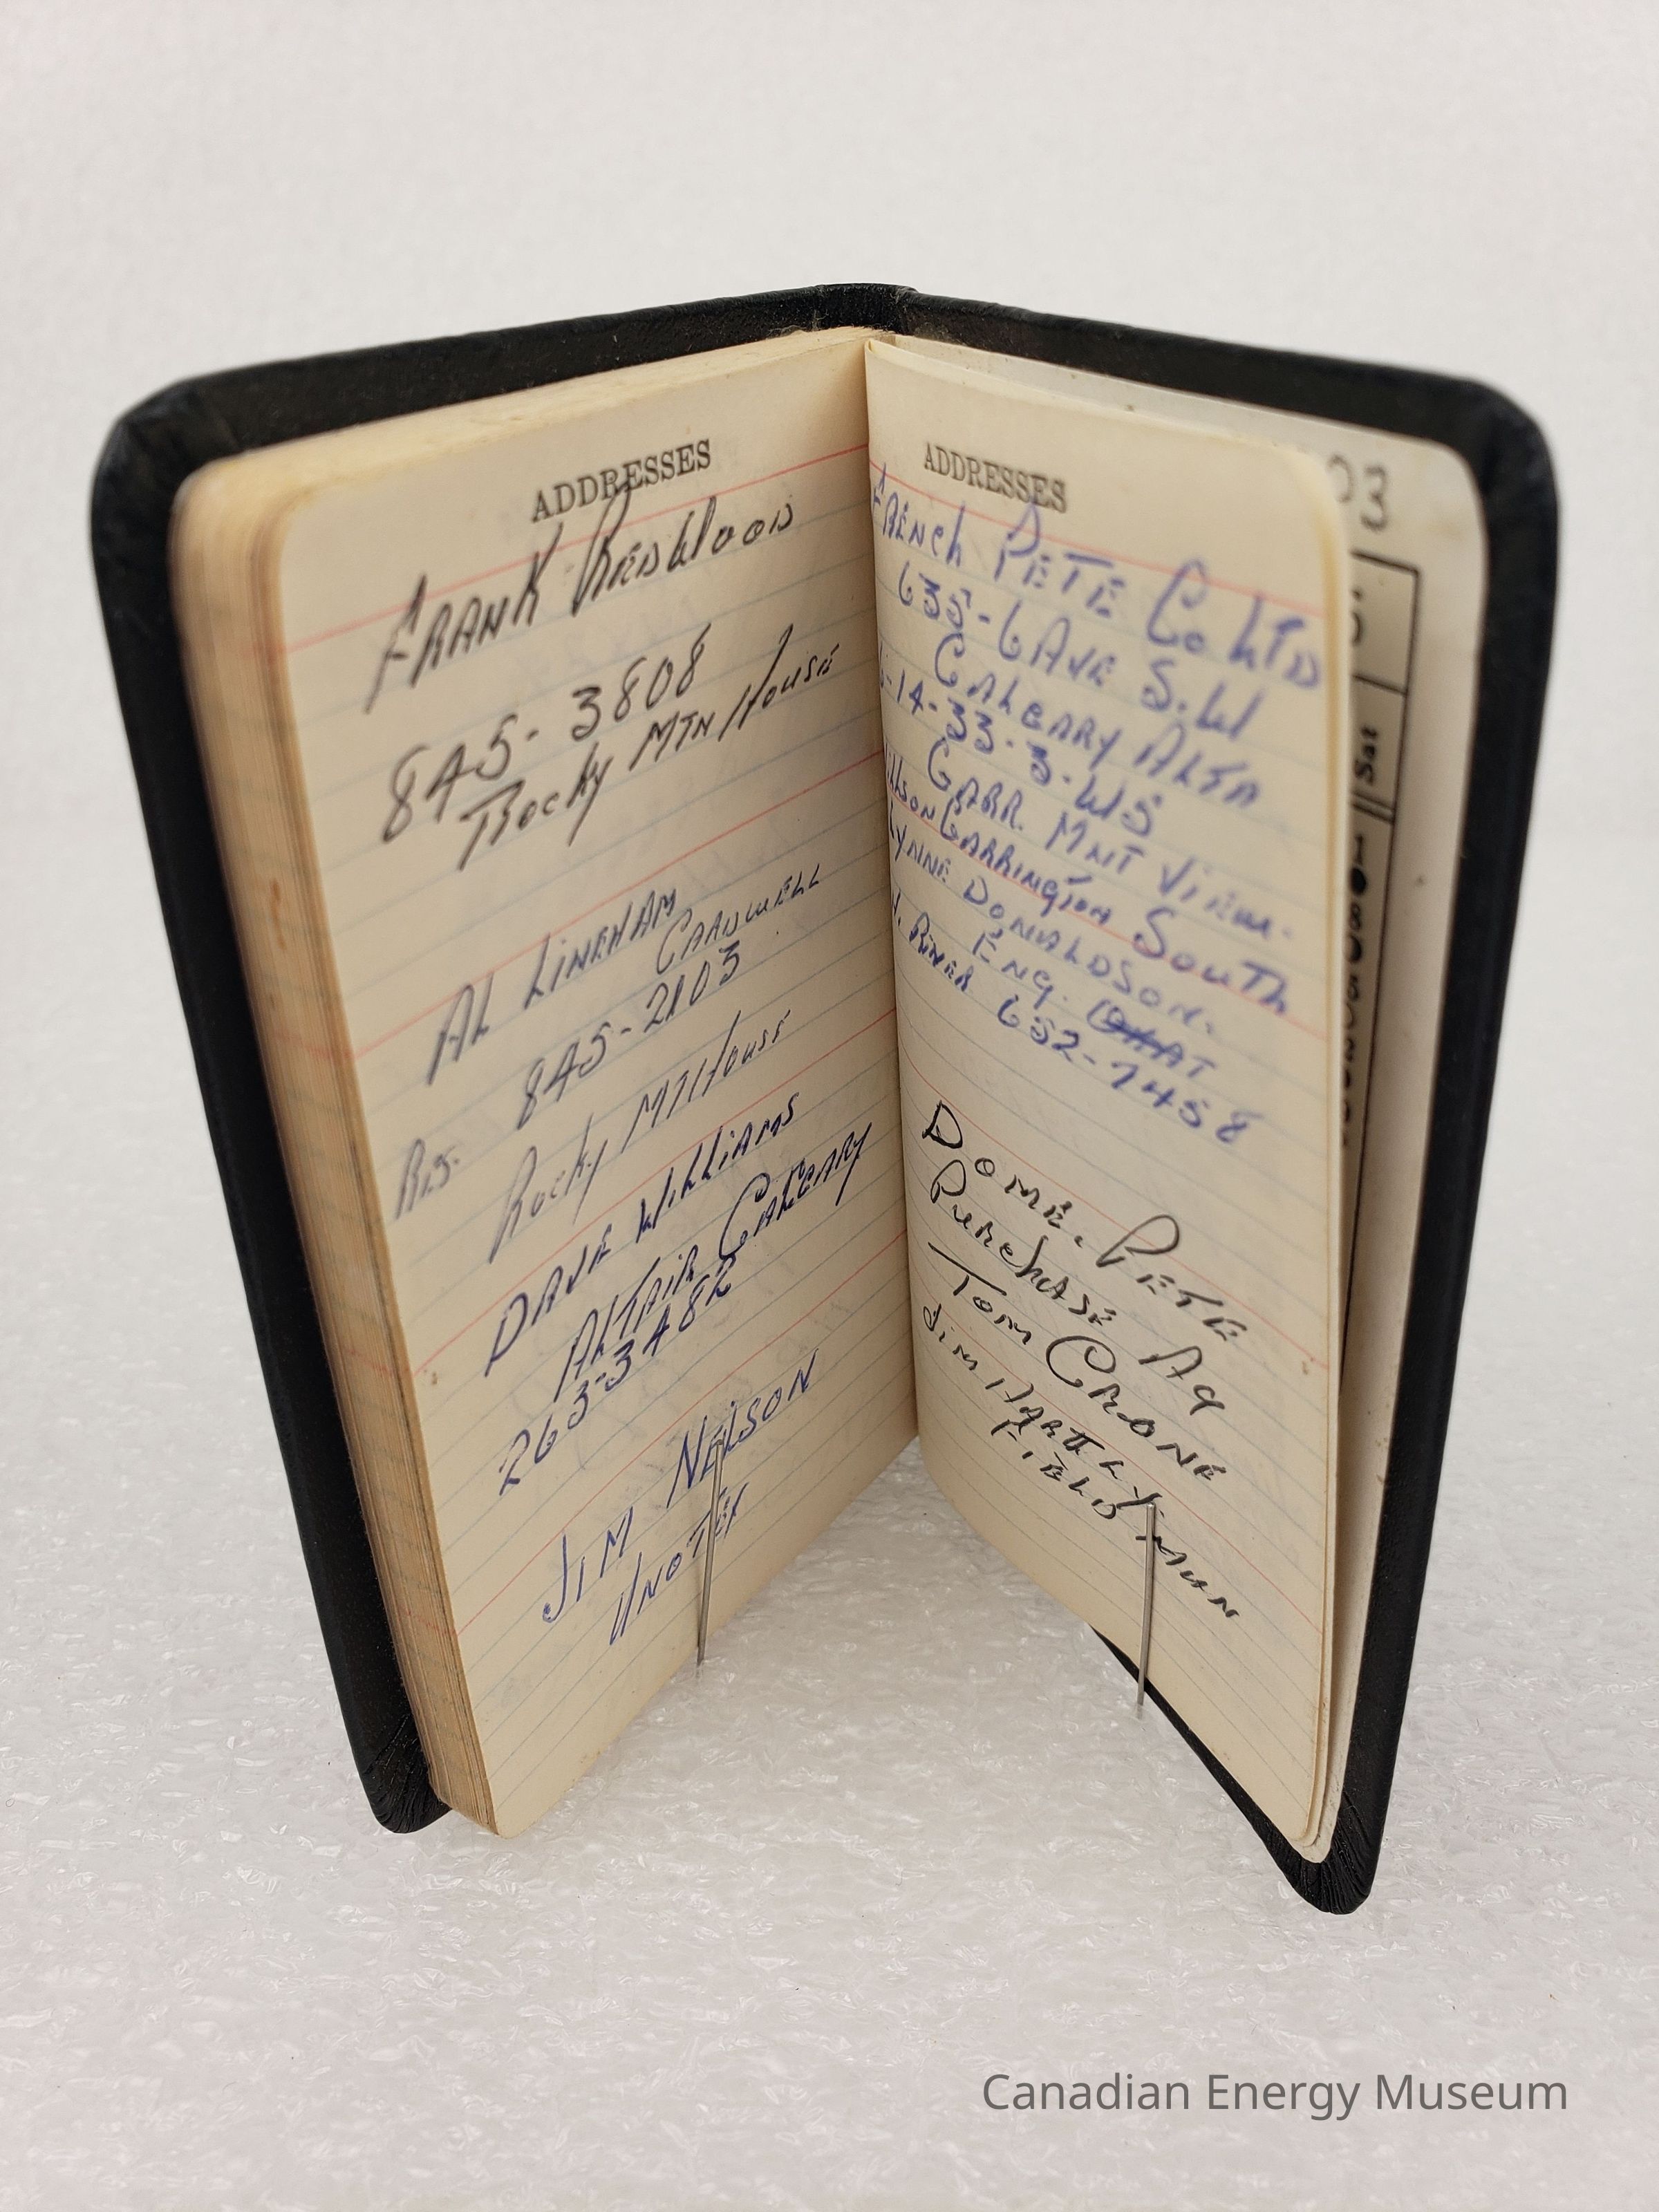 ADDRESSES
FRANK REDWOOD
845-3808
Rocky MTN House
AL LINEHAM
CARDWELL
845-2103
Res.
Rocky MT House
DAVE WILLIAMS
ALTAIR CALGARY
263-3482
JIM NELSON
UNOTEX
ADDRESSES
FRENch PETE Co LTD
635-6 AVE S.W
CALGARY ALTA
-14-33-3-W5
CARR. MNT VIEW.
CARRINGTON South
LYNNE DONALDSON.
ENG.
RIVER 652-7458
DOME. PETE
PURchASE Ag
TOM CRONE
JIM HARTLY
FIELD MUN
03
Sat
Canadian Energy Museum